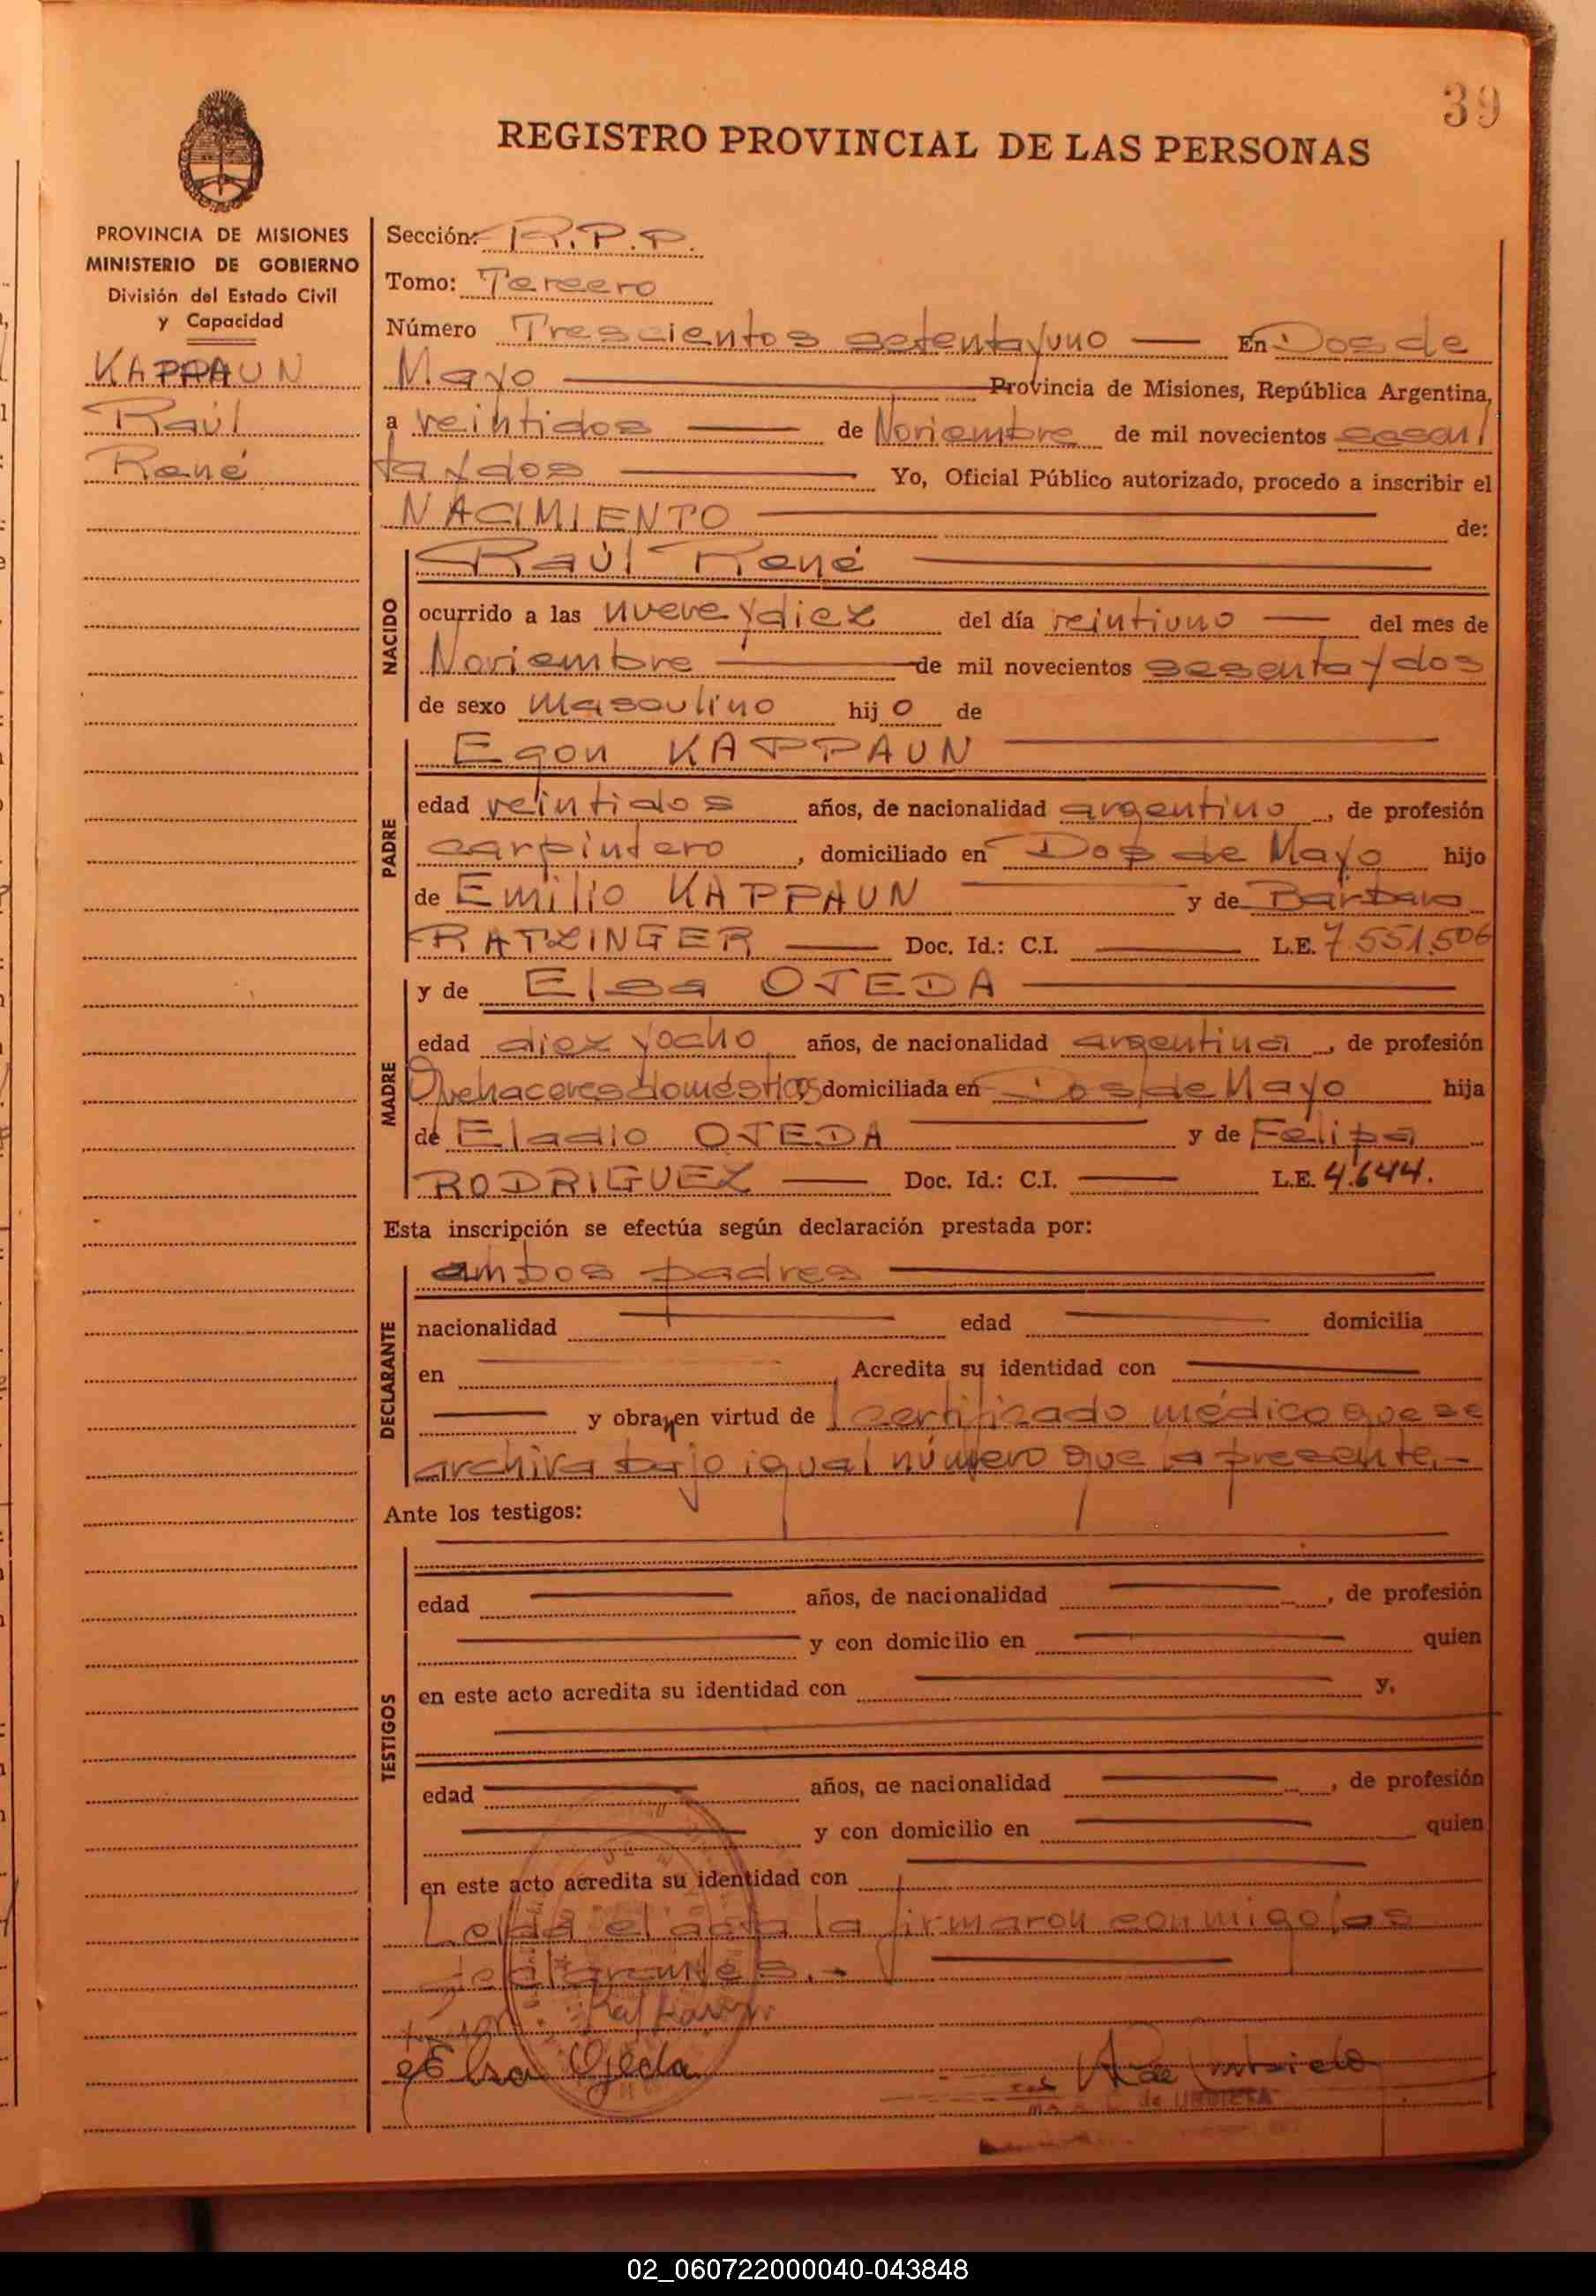 39
REGISTRO PROVINCIAL DE LAS PERSONAS
PROVINCIA DE MISIONES
MINISTERIO DE GOBIERNO
División del Estado Civil
y Capacidad
KAPPAUN
Raúl
René
Sección: R.P.P.
Tomo: Tercero
Número Trescientos setenta y uno — En Dos de
Mayo — Provincia de Misiones, República Argentina,
a veintidos — de Noviembre de mil novecientos sesen
ta y dos — Yo, Oficial Público autorizado, procedo a inscribir el
NACIMIENTO — de:
NACIDO
Raúl René —
ocurrido a las nueve y diez del día veintiuno — del mes de
Noviembre — de mil novecientos sesenta y dos
de sexo masculino hijo de
PADRE
Egon KAPPAUN —
edad veintidos años, de nacionalidad argentino, de profesión
carpintero, domiciliado en Dos de Mayo hijo
de Emilio KAPPAUN — y de Bárbara
RATZINGER — Doc. Id.: C.I. — L.E. 7.551.506
MADRE
y de Elsa OJEDA —
edad diez y ocho años, de nacionalidad argentina, de profesión
Quehaceres domésticos domiciliada en Dos de Mayo hija
de Eladio OJEDA — y de Felipa
RODRIGUEZ — Doc. Id.: C.I. — L.E. 4.644.
Esta inscripción se efectúa según declaración prestada por:
DECLARANTE
ambos padres —
nacionalidad — edad — domicilia
en — Acredita su identidad con —
— y obra en virtud de certificado médico que se
archiva bajo igual número que la presente.-
Ante los testigos:
TESTIGOS
edad — años, de nacionalidad —, de profesión
— y con domicilio en — quien
en este acto acredita su identidad con — y,
edad — años, de nacionalidad —, de profesión
— y con domicilio en — quien
en este acto acredita su identidad con —
Leída el acta la firmaron conmigo los
declarantes.- —
Kappaun
Elsa Ojeda
de URBIETA
02_060722000040-043848